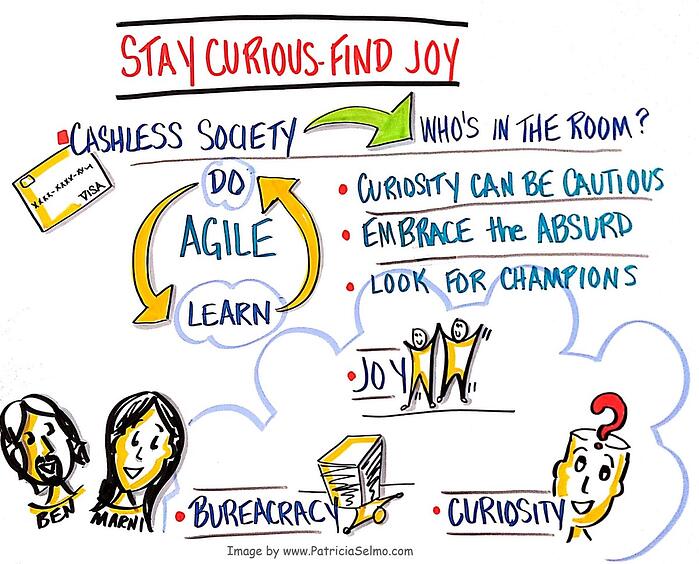 STAY CURIOUS-FIND JOY
CASHLESS SOCIETY
WHO'S IN THE ROOM?
XXXX-XXXX-XX-4
VISA
DO
AGILE
LEARN
• CURIOSITY CAN BE CAUTIOUS
• EMBRACE the ABSURD
• LOOK FOR CHAMPIONS
• JOY
BEN
MARNI
• BUREACRACY
• CURIOSITY
Image by www.PatriciaSelmo.com